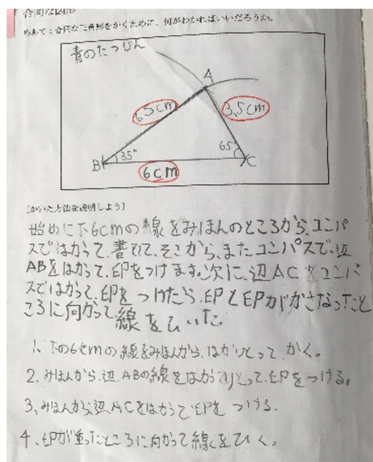 合同な図形
めあて:合同な三角形をかくために、何がわかればいいだろうか。
青のたつじん
A
6.5cm
3.5cm
B
35°
65°
C
6cm
[かいた方法を説明しよう]
始めに下6cmの線をみほんのところから、コンパ
スではかって、書いて、そこから、またコンパスで、辺
ABをはかって、印をつけます。次に、辺ACをコンパ
スではかって、印をつけたら、印と印ががさなったと
ころに向かって線をひいた。
1、下の6cmの線をみほんから、はかりとって、かく。
2、みほんから、辺ABの線をはかりとって、印をつける。
3、みほんから、辺ACをはかって、印をつける。
4、印が重ったところに向かって線をひく。